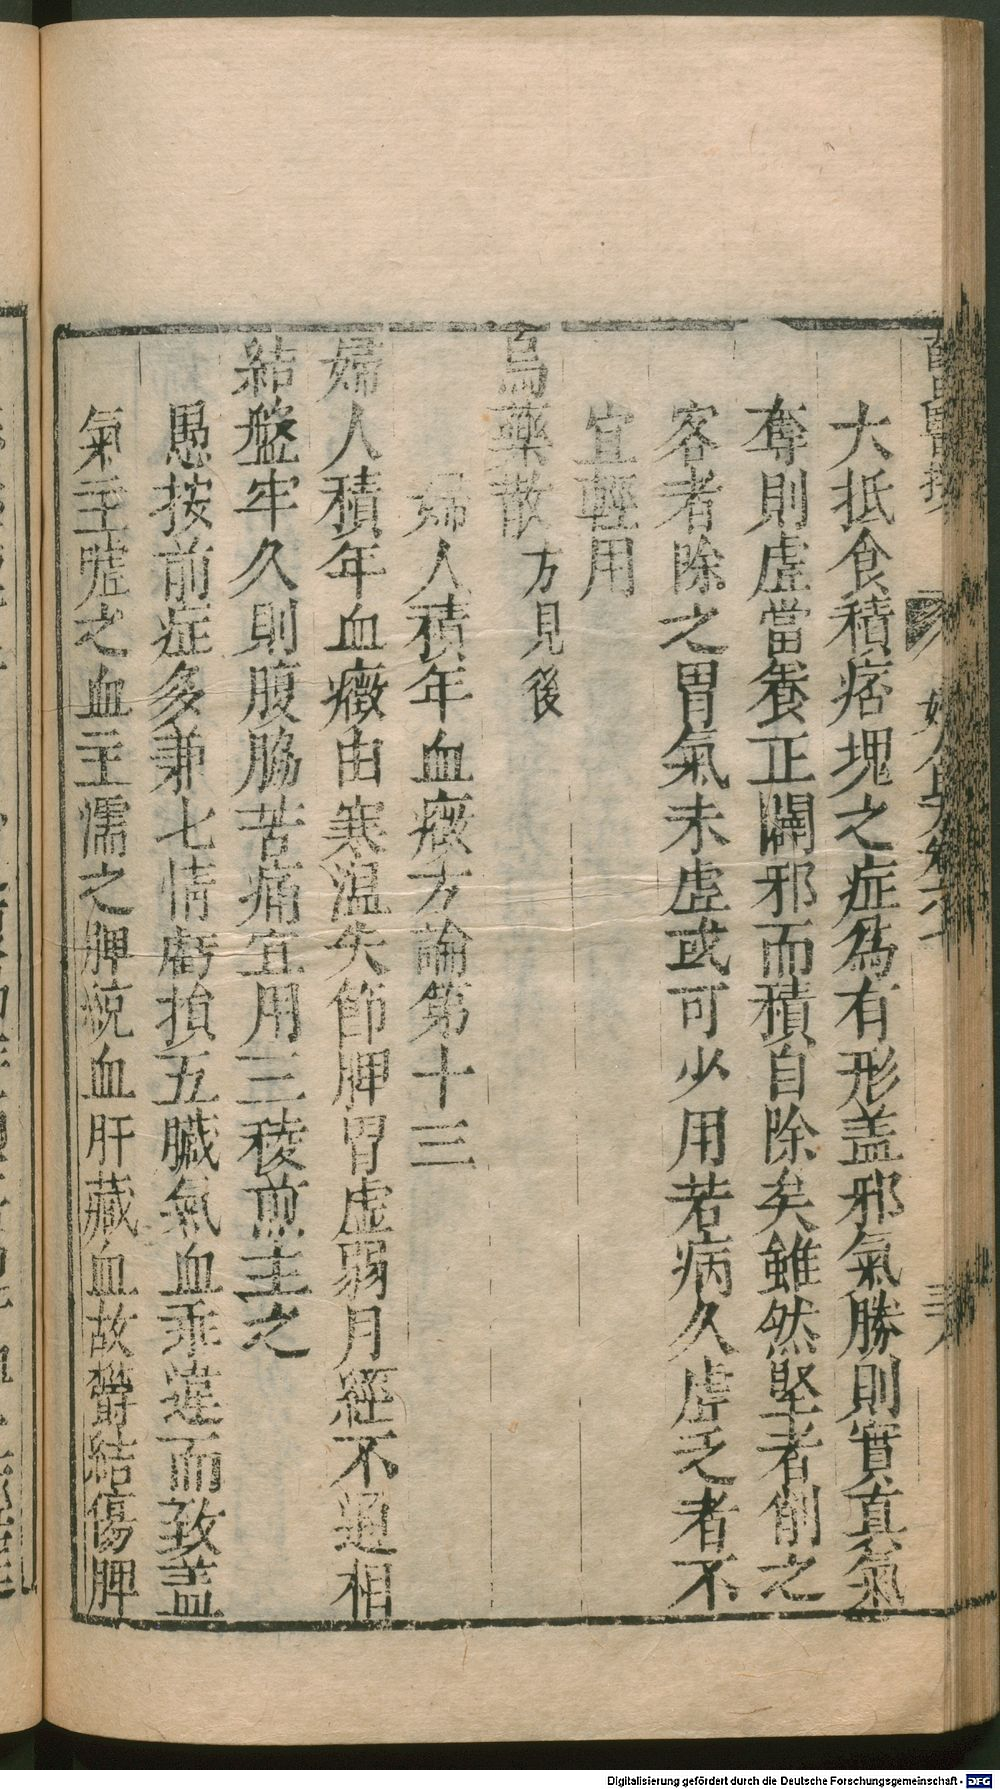 大抵食積痞塊之症為有形盖邪氣勝則實真氣
奪則虛當養正闢邪而積自除矣雖然堅者削之
客者除之胃氣未虛或可少用若病久虛乏者不
宜輕用
烏藥散方見後
婦人積年血癥方論第十三
婦人積年血癥由寒温失節脾胃虛弱月經不通相
結盤牢久則腹脇苦痛宜用三稜煎主之
愚按前症多兼七情虧損五臟氣血乖違而致盖
氣主噓之血主濡之脾統血肝藏血故欝結傷脾
Digitalisierung gefördert durch die Deutsche Forschungsgemeinschaft - DFG